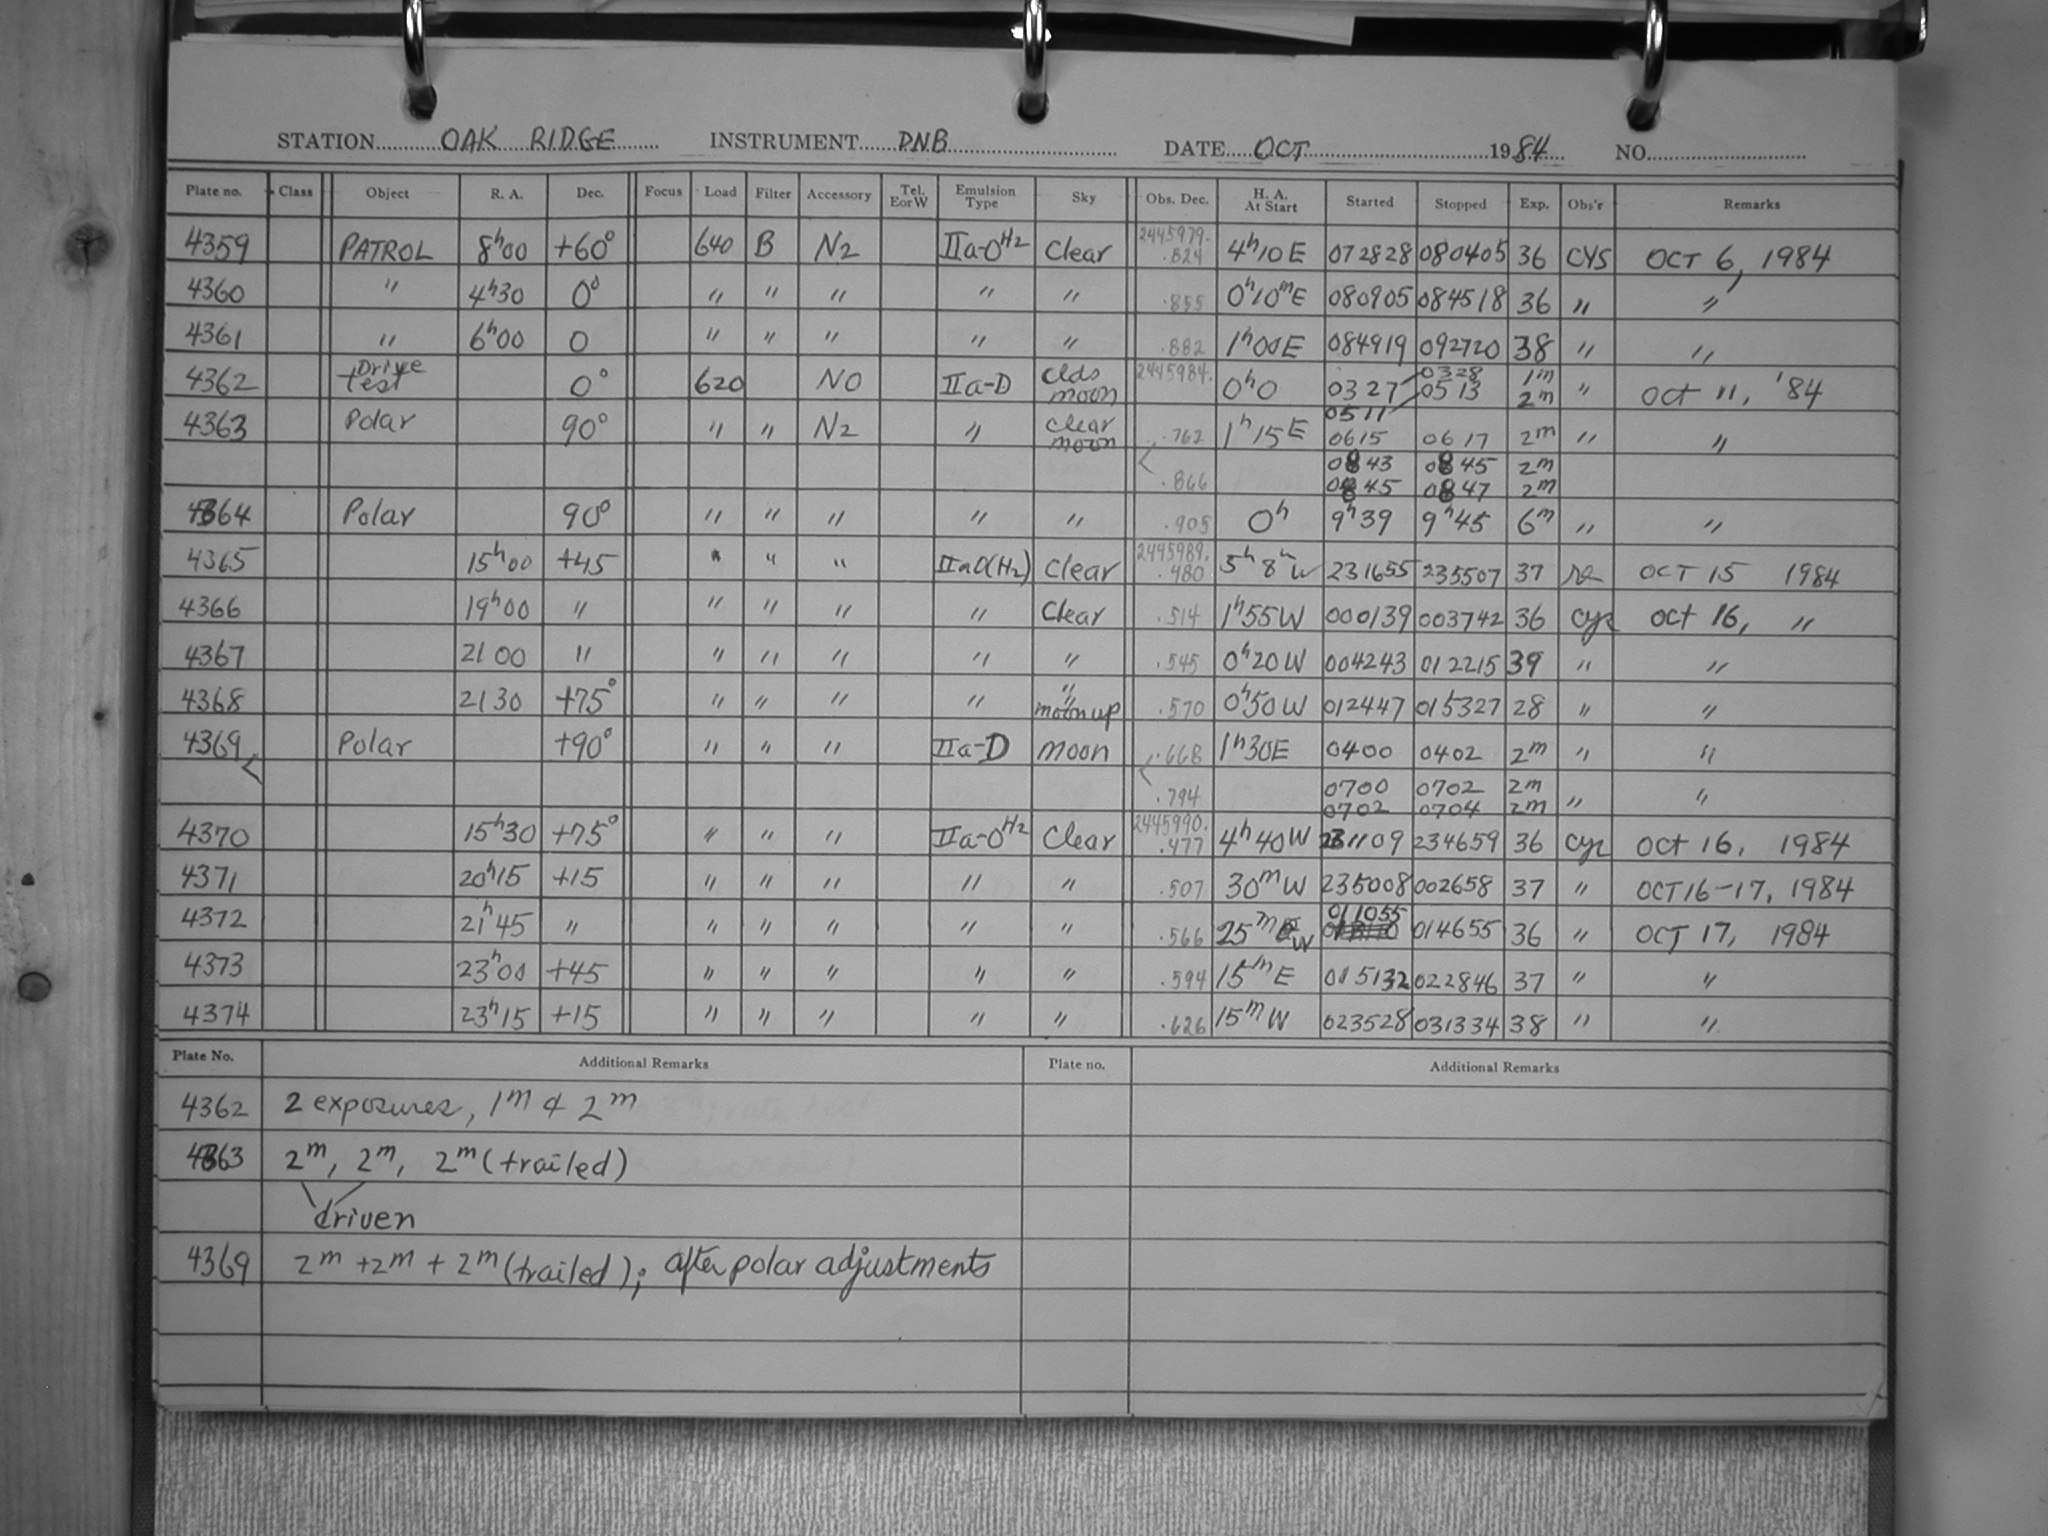 STATION OAK RIDGE INSTRUMENT DNB DATE OCT 1984 NO.
Plate no. Class Object R. A. Dec. Focus Load Filter Accessory Tel. E or W Emulsion Type Sky Obs. Dec. H. A. At Start Started Stopped Exp. Obs'r Remarks
4359 PATROL 8h00 +60° 640 B N2 IIa-O H2 Clear 2445979. .824 4h10E 072828 080405 36 CYS OCT 6, 1984
4360 " 4h30 0° " " " " " .855 0h10mE 080905 084518 36 " "
4361 " 6h00 0 " " " " " .882 1h00E 084919 092720 38 " "
4362 Drive test 0° 620 NO IIa-D Clds moon 2445984. 0h0 0327 0328 1m " Oct 11, '84
0511 0513 2m
4363 Polar 90° " " N2 " clear moon .762 1h15E 0615 0617 2m " "
0843 0845 2m
.866 0845 0847 2m
4364 Polar 90° " " " " " .905 0h 9h39 9h45 6m " "
4365 15h00 +45 " " " IIaO(H2) Clear 2445989. .480 5h8hW 231655 235507 37 OCT 15 1984
4366 19h00 " " " " " Clear .514 1h55W 000139 003742 36 cys Oct 16, "
4367 21 00 " " " " " " .545 0h20W 004243 012215 39 " "
4368 21 30 +75° " " " " " moon up .570 0h50W 012447 015327 28 " "
4369 Polar +90° " " " IIa-D moon .668 1h30E 0400 0402 2m " "
.794 0700 0702 2m " "
0702 0704 2m
4370 15h30 +75° " " " IIa-O H2 Clear 2445990. .477 4h40W 231109 234659 36 cys Oct 16, 1984
4371 20h15 +15 " " " " " .507 30mW 235008 002658 37 " OCT 16-17, 1984
4372 21h45 " " " " " " .566 25mW 011055 014655 36 " OCT 17, 1984
4373 23h00 +45 " " " " " .594 15mE 015132 022846 37 " "
4374 23h15 +15 " " " " " .626 15mW 023528 031334 38 " "
Plate No. Additional Remarks Plate no. Additional Remarks
4362 2 exposures, 1m & 2m
4363 2m, 2m, 2m (trailed)
driven
4369 2m + 2m + 2m (trailed); after polar adjustments